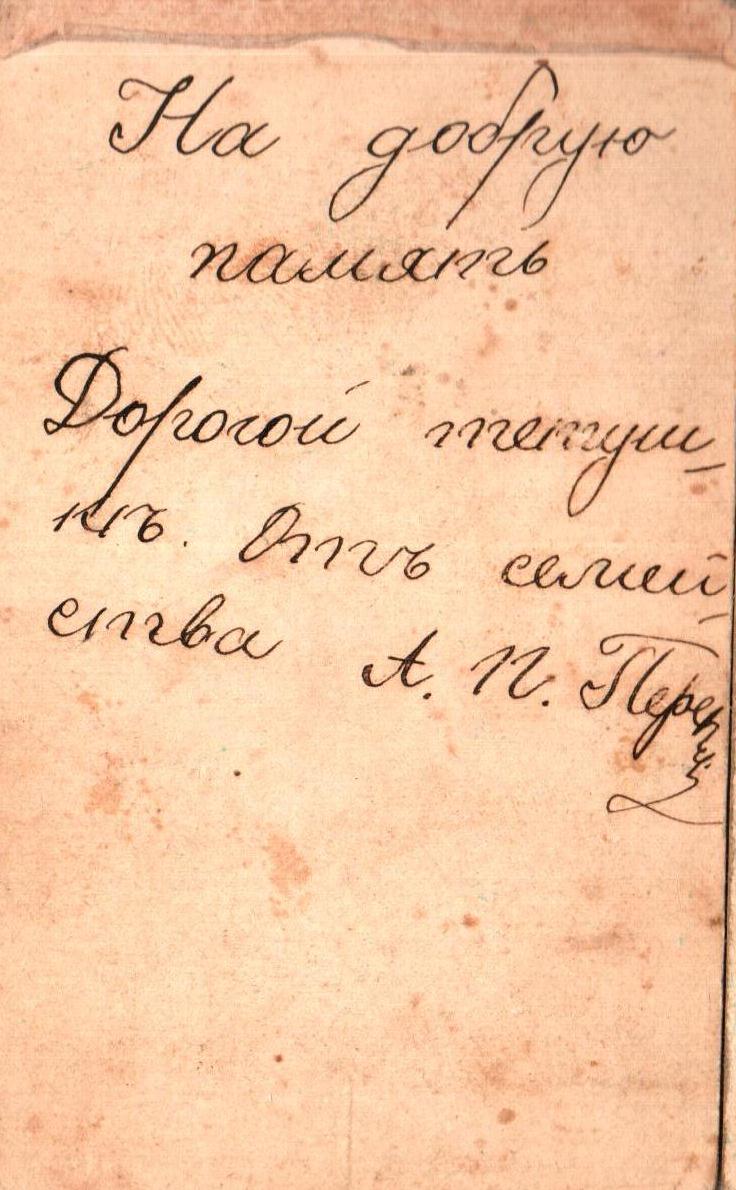 На добрую
память
Дорогой тетуш-
къ. Отъ семей-
ства А. П.